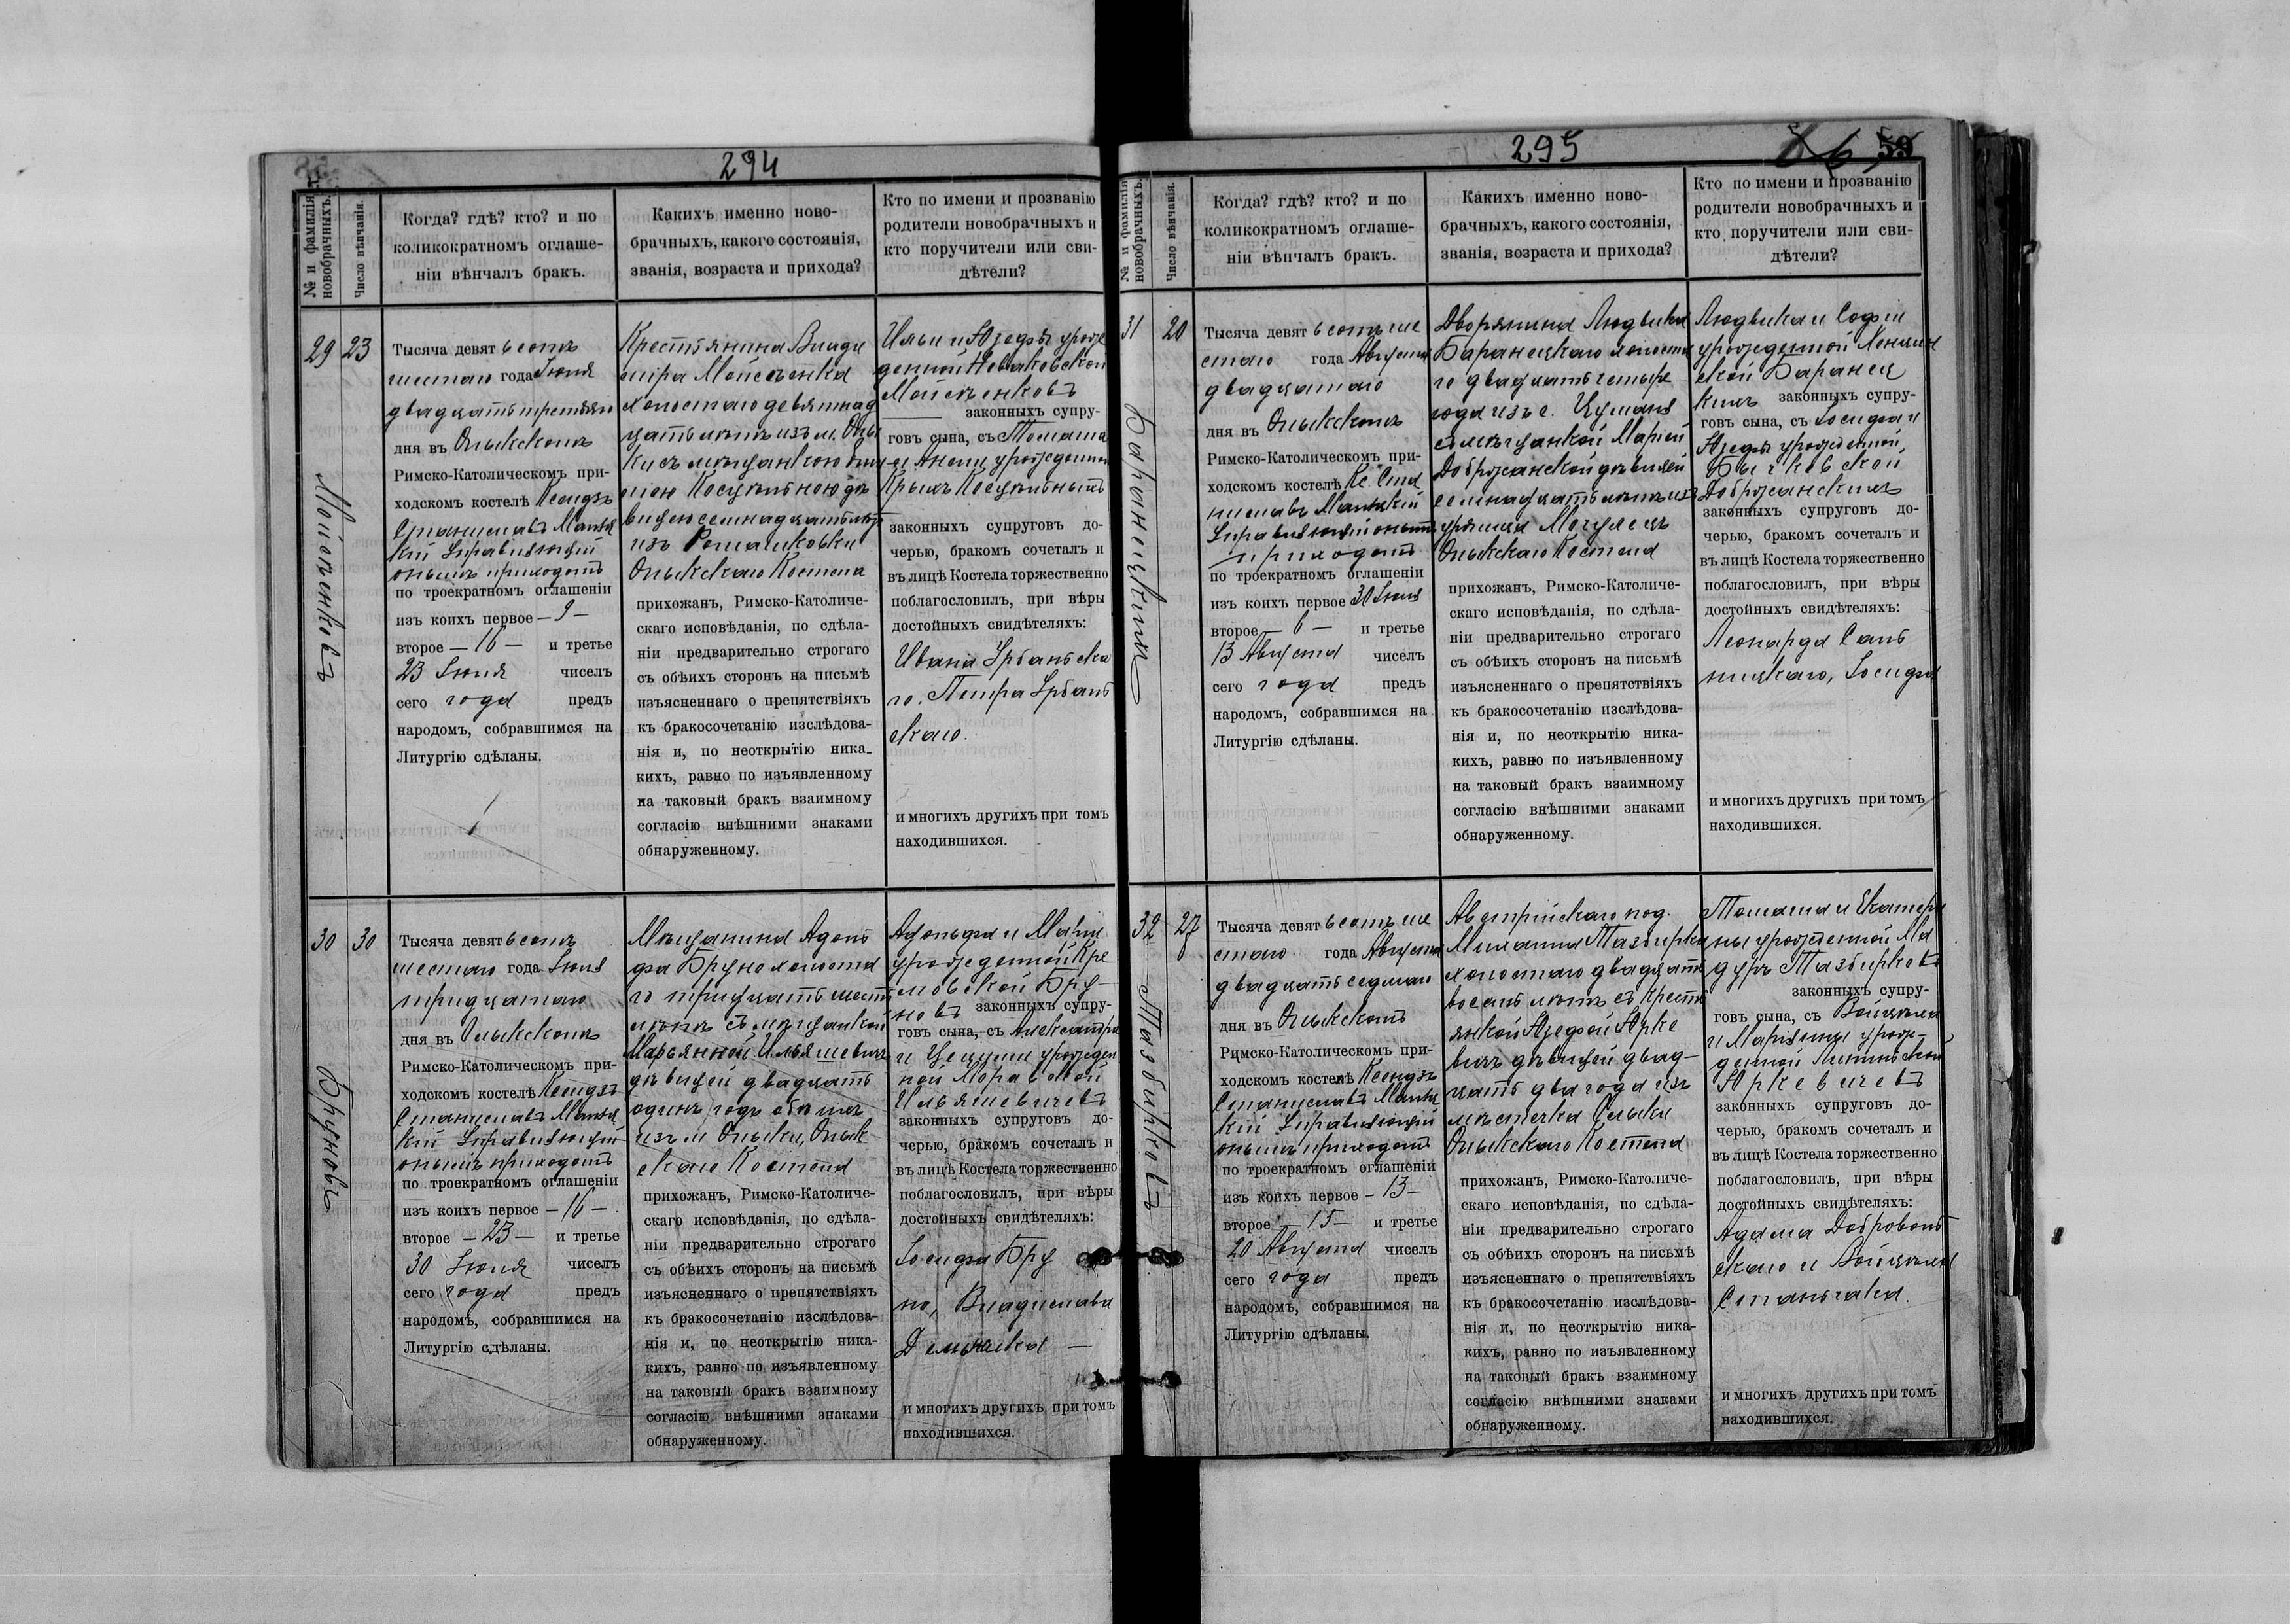 294
№ и фамилія новобрачныхъ.
Число вѣнчанія.
Когда? гдѣ? кто? и по
коликократномъ оглаше-
ніи вѣнчалъ бракъ.
Какихъ именно ново-
брачныхъ, какого состоянія,
званія, возраста и прихода?
Кто по имени и прозванію
родители новобрачныхъ и
кто поручители или сви-
дѣтели?
29
23
Моисѣенковъ
Тысяча девятьсотъ
шестаго года Іюля
двадцать третьяго
дня въ Олыкскомъ
Римско-Католическомъ при-
ходскомъ костелѣ Ксендзъ
Станиславъ
Управляющій
онымъ приходомъ
по троекратномъ оглашеніи
изъ коихъ первое — 9 —
второе — 16 — и третье
23 Іюля чиселъ
сего года предъ
народомъ, собравшимся на
Литургію сдѣланы.
Крестьянина Влади
міра Моисѣенка
холостаго девятнад
цать лѣтъ изъ м. Олы
ки съ мѣщанкою
дѣ
вицею семнадцать лѣтъ
изъ Ромашковки
Олыкскаго Костела
прихожанъ, Римско-Католиче-
скаго исповѣданія, по сдѣла-
ніи предварительно строгаго
съ обѣихъ сторонъ на письмѣ
изъясненнаго о препятствіяхъ
къ бракосочетанію изслѣдова-
нія и, по неоткрытію ника-
кихъ, равно по изъявленному
на таковый бракъ взаимному
согласію внѣшними знаками
обнаруженному.
Ильи и Юзефы урож
денной
Моисѣенковъ
законныхъ супру-
говъ сына, съ Томаша
и Анели урожденной
Крыхъ
законныхъ супруговъ до-
черью, бракомъ сочеталъ и
въ лицѣ Костела торжественно
поблагословилъ, при вѣры
достойныхъ свидѣтеляхъ:
Ивана Урбанска
го, Петра Урбан
скаго.
и многихъ другихъ при томъ
находившихся.
30
30
Бруновъ
Тысяча девятьсотъ
шестаго года Іюля
тридцатаго
дня въ Олыкскомъ
Римско-Католическомъ при-
ходскомъ костелѣ Ксендзъ
Станиславъ
Управляющій
онымъ приходомъ
по троекратномъ оглашеніи
изъ коихъ первое — 16 —
второе — 23 — и третье
30 Іюля чиселъ
сего года предъ
народомъ, собравшимся на
Литургію сдѣланы.
Мѣщанина Адоль
фа Бруно холоста
го тридцать шесть
лѣтъ съ мѣщанкой
Марьянной Ильяшевичъ
дѣвицей двадцать
одинъ годъ обоихъ
изъ м Олыки, Олык
скаго Костела
прихожанъ, Римско-Католиче-
скаго исповѣданія, по сдѣла-
ніи предварительно строгаго
съ обѣихъ сторонъ на письмѣ
изъясненнаго о препятствіяхъ
къ бракосочетанію изслѣдова-
нія и, по неоткрытію ника-
кихъ, равно по изъявленному
на таковый бракъ взаимному
согласію внѣшними знаками
обнаруженному.
Адольфа и Маріи
урожденной Кре
мовской Бру
новъ законныхъ супру-
говъ сына, съ Александра
и Цециліи урожден
ной Моравской
Ильяшевичевъ
законныхъ супруговъ до-
черью, бракомъ сочеталъ и
въ лицѣ Костела торжественно
поблагословилъ, при вѣры
достойныхъ свидѣтеляхъ:
Іосифа Бру
но, Владислава
и многихъ другихъ при томъ
находившихся.
295
59
№ и фамилія новобрачныхъ.
Число вѣнчанія.
Когда? гдѣ? кто? и по
коликократномъ оглаше-
ніи вѣнчалъ бракъ.
Какихъ именно ново-
брачныхъ, какого состоянія,
званія, возраста и прихода?
Кто по имени и прозванію
родители новобрачныхъ и
кто поручители или сви-
дѣтели?
31
20
Баранецкихъ
Тысяча девятьсотъ ше
стаго года Августа
двадцатаго
дня въ Олыкскомъ
Римско-Католическомъ при-
ходскомъ костелѣ Кс. Ста
ниславъ
Управляющій онымъ
приходомъ
по троекратномъ оглашеніи
изъ коихъ первое 30 Іюля
второе — 6 — и третье
13 Августа чиселъ
сего года предъ
народомъ, собравшимся на
Литургію сдѣланы.
Дворянина Людвика
Баранецкаго холоста
го двадцать четыре
года изъ с. Цумань
съ мѣщанкой Маріей
Доброжанской дѣвицей
семнадцать лѣтъ изъ
урочища
Олыкскаго Костела
прихожанъ, Римско-Католиче-
скаго исповѣданія, по сдѣла-
ніи предварительно строгаго
съ обѣихъ сторонъ на письмѣ
изъясненнаго о препятствіяхъ
къ бракосочетанію изслѣдова-
нія и, по неоткрытію ника-
кихъ, равно по изъявленному
на таковый бракъ взаимному
согласію внѣшними знаками
обнаруженному.
Людвика и Софіи
урожденной
Баранец
кихъ законныхъ супру-
говъ сына, съ Іосифа и
Юзефы урожденной
Бычковской
Доброжанскихъ
законныхъ супруговъ до-
черью, бракомъ сочеталъ и
въ лицѣ Костела торжественно
поблагословилъ, при вѣры
достойныхъ свидѣтеляхъ:
Леонарда
Іосифа
и многихъ другихъ при томъ
находившихся.
32
27
Тазбирковъ
Тысяча девятьсотъ ше
стаго года Августа
двадцать седьмаго
дня въ Олыкскомъ
Римско-Католическомъ при-
ходскомъ костелѣ Ксендзъ
Станиславъ
Управляющій
онымъ приходомъ
по троекратномъ оглашеніи
изъ коихъ первое — 13 —
второе — 15 — и третье
20 Августа чиселъ
сего года предъ
народомъ, собравшимся на
Литургію сдѣланы.
Австрійскаго под.
Михаила Тазбирка
холостаго двадцать
восемь лѣтъ съ кресть
янкой Юзефой Юрке
вичъ дѣвицей двад-
цать два года изъ
мѣстечка Олыки
Олыкскаго Костела
прихожанъ, Римско-Католиче-
скаго исповѣданія, по сдѣла-
ніи предварительно строгаго
съ обѣихъ сторонъ на письмѣ
изъясненнаго о препятствіяхъ
къ бракосочетанію изслѣдова-
нія и, по неоткрытію ника-
кихъ, равно по изъявленному
на таковый бракъ взаимному
согласію внѣшними знаками
обнаруженному.
Томаша и Екатери
ны урожденной Ма
дуръ Тазбирковъ
законныхъ супру-
говъ сына, съ Войцѣха
и Маріанны урож-
денной Липинской
Юркевичевъ
законныхъ супруговъ до-
черью, бракомъ сочеталъ и
въ лицѣ Костела торжественно
поблагословилъ, при вѣры
достойныхъ свидѣтеляхъ:
Адама Доброволь
скаго и Войцѣха
и многихъ другихъ при томъ
находившихся.